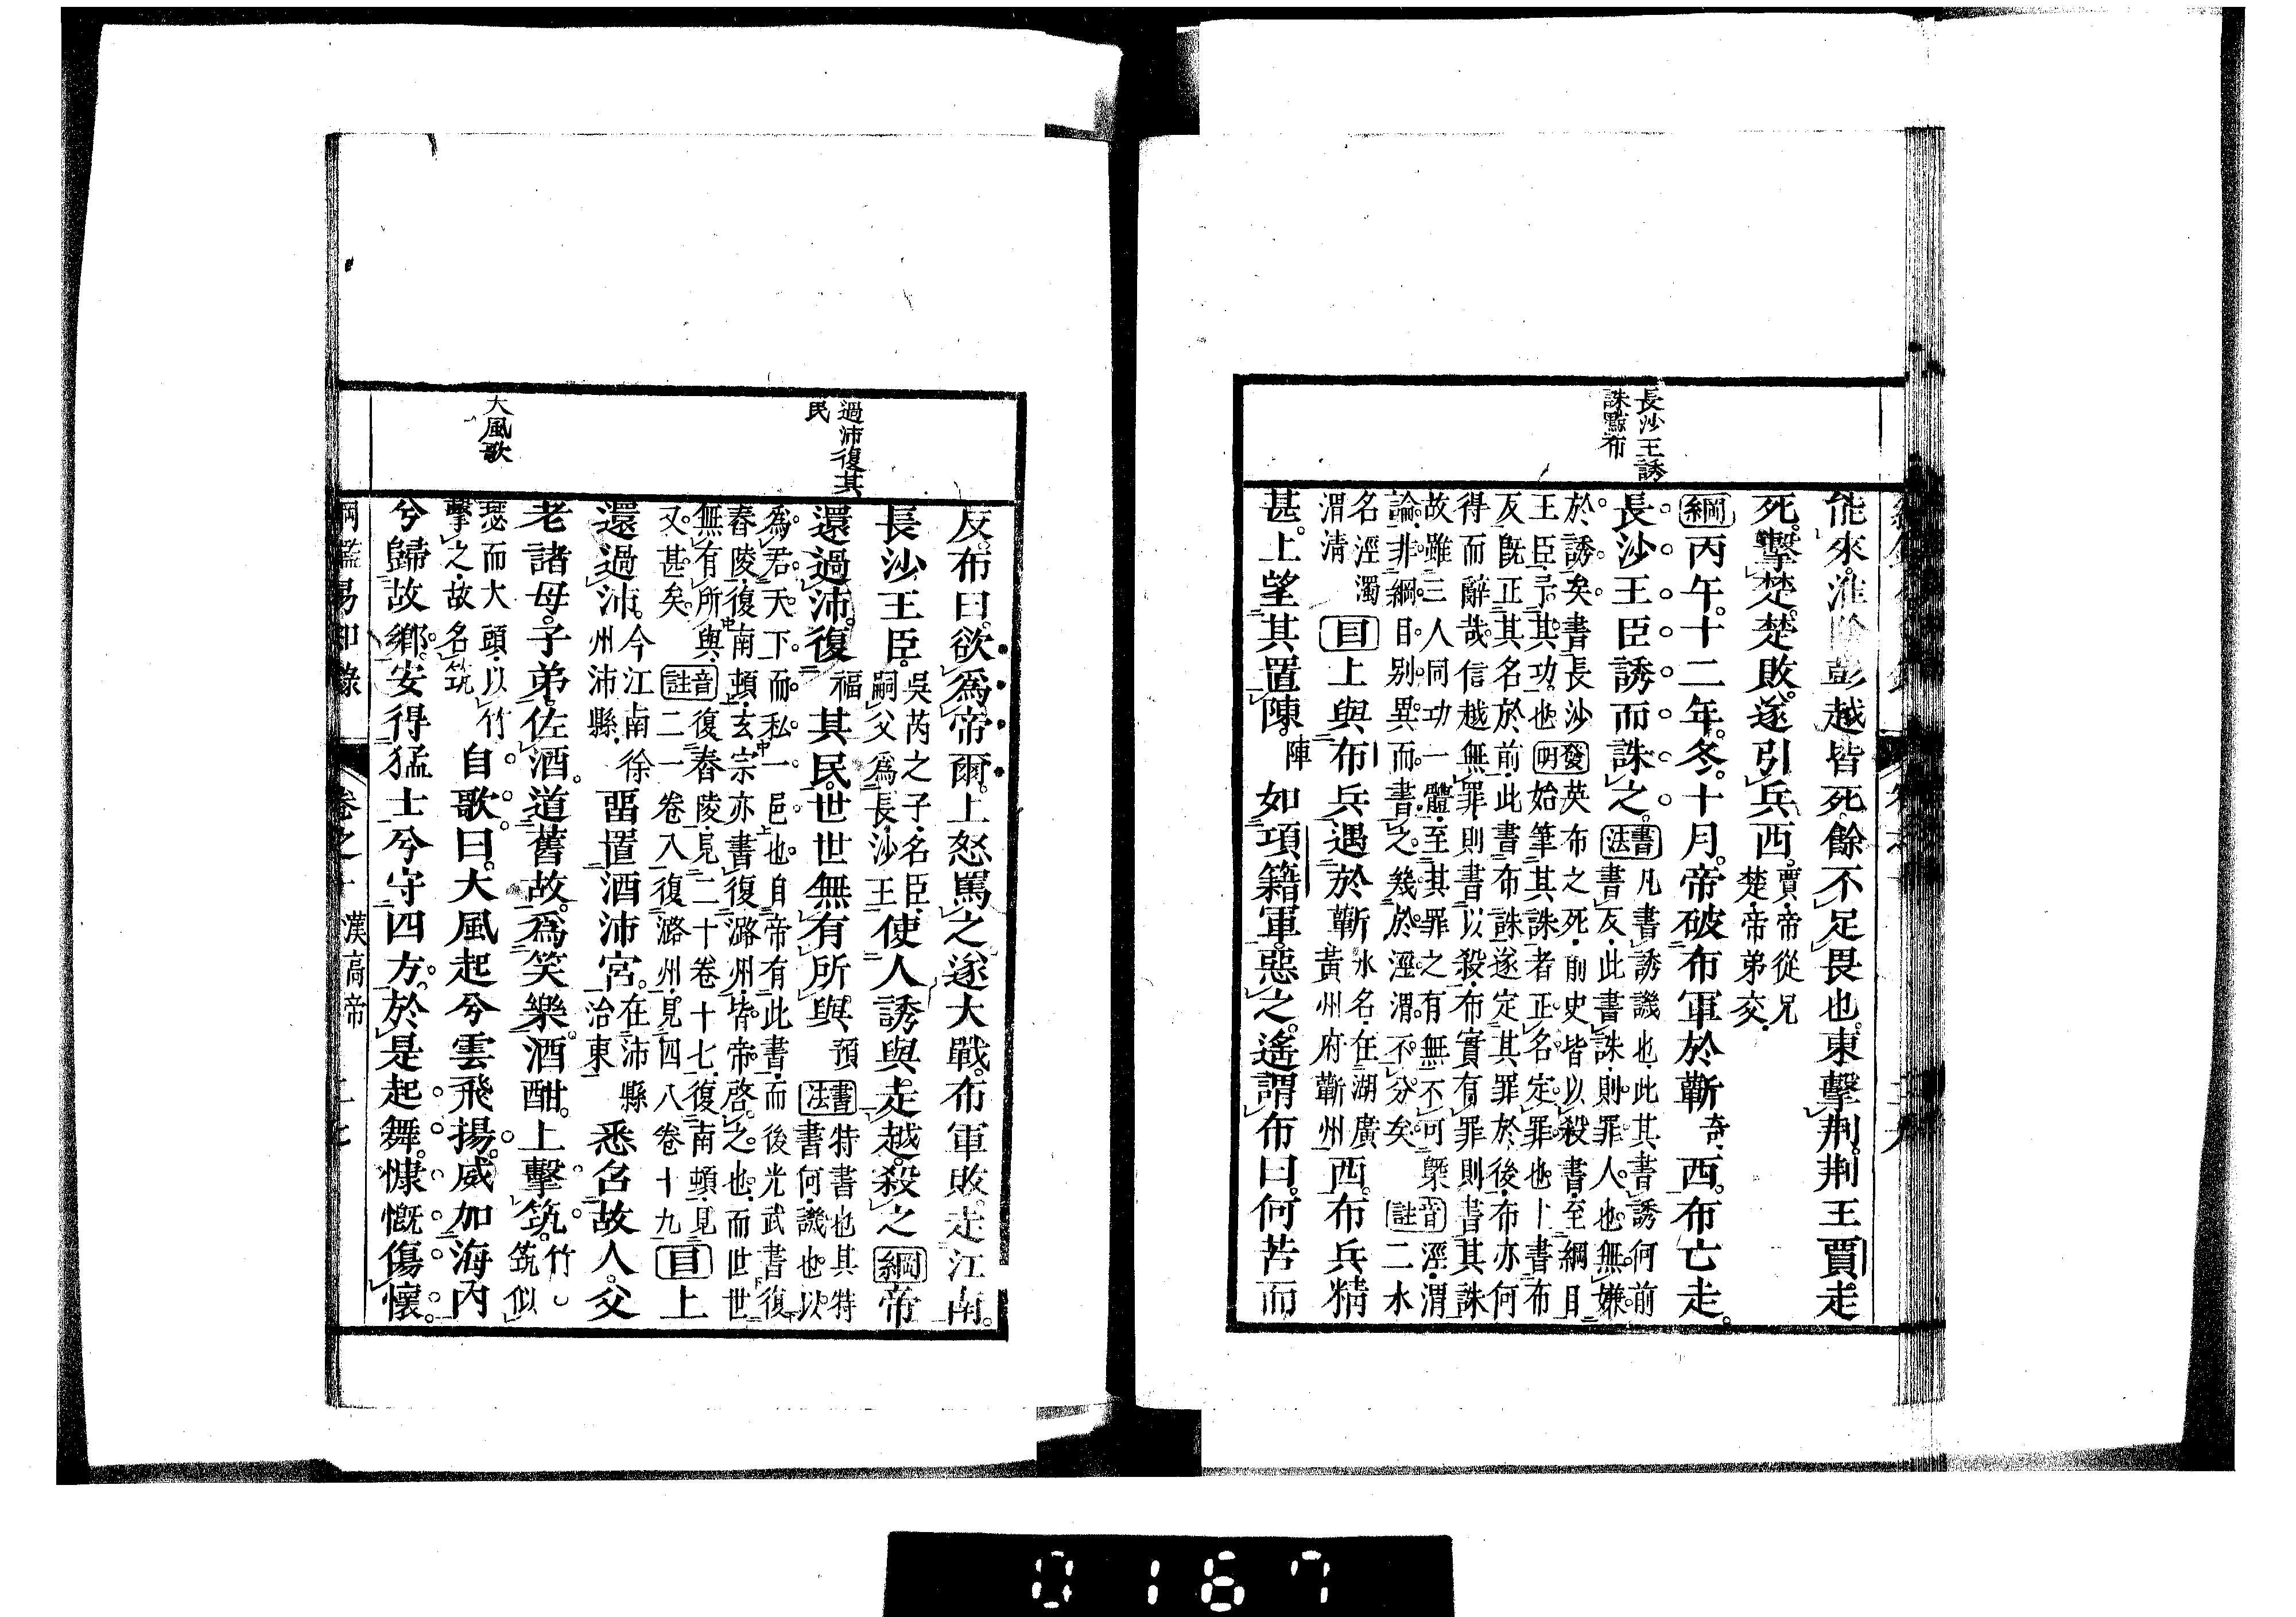 長沙王誘
誅黥布
能來淮陰彭越皆死餘不足畏也東擊荆荆王賈走
死擊楚楚敗遂引兵西賈帝從兄
楚帝弟交
綱丙午十二年冬十月帝破布軍於蘄奇西布亡走
長沙王臣誘而誅之書法凡書誘譏也此其書誘何前
書反此書誅則罪人也無嫌
於誘矣書長沙發明英布之死前史皆以殺書至綱目
王臣予其功也始筆其誅者正名定罪也上書布
反旣正其名於前此書布誅遂定其罪於後布亦何
得而辭哉信越無罪則書以殺布實有罪則書其誅
故雖三人同功一體至其罪之有無不可槩音註涇渭
論非綱目別異而書之幾於涇渭不分矣二水
名涇濁
渭清
目上與布兵遇於蘄水名在湖廣
黃州府蘄州西布兵精
甚上望其置陳陣如項籍軍惡之遙謂布曰何苦而
過沛復其
民
大風歌
反布曰欲爲帝爾上怒罵之遂大戰布軍敗走江南
長沙王臣吳芮之子名臣
嗣父爲長沙王使人誘與走越殺之綱帝
還過沛復福其民世世無有所與預書法特書也其特
書何譏也以
爲君天下而私一邑也自帝有此書而後光武書復
舂陵復南頓玄宗亦書復潞州皆帝啓之也而世世
無有所與音註復舂陵見二十卷十七復南頓見
又甚矣二一卷八復潞州見四八卷十九目上
還過沛今江南徐
州沛縣畱置酒沛宮在沛縣
治東悉召故人父
老諸母子弟佐酒道舊故爲笑樂酒酣上擊筑竹
筑似
瑟而大頭以竹
擊之故名筑自歌曰大風起兮雲飛揚威加海內
兮歸故鄉安得猛士兮守四方於是起舞慷慨傷懷
綱鑑易知錄 卷之十 漢高帝
0167